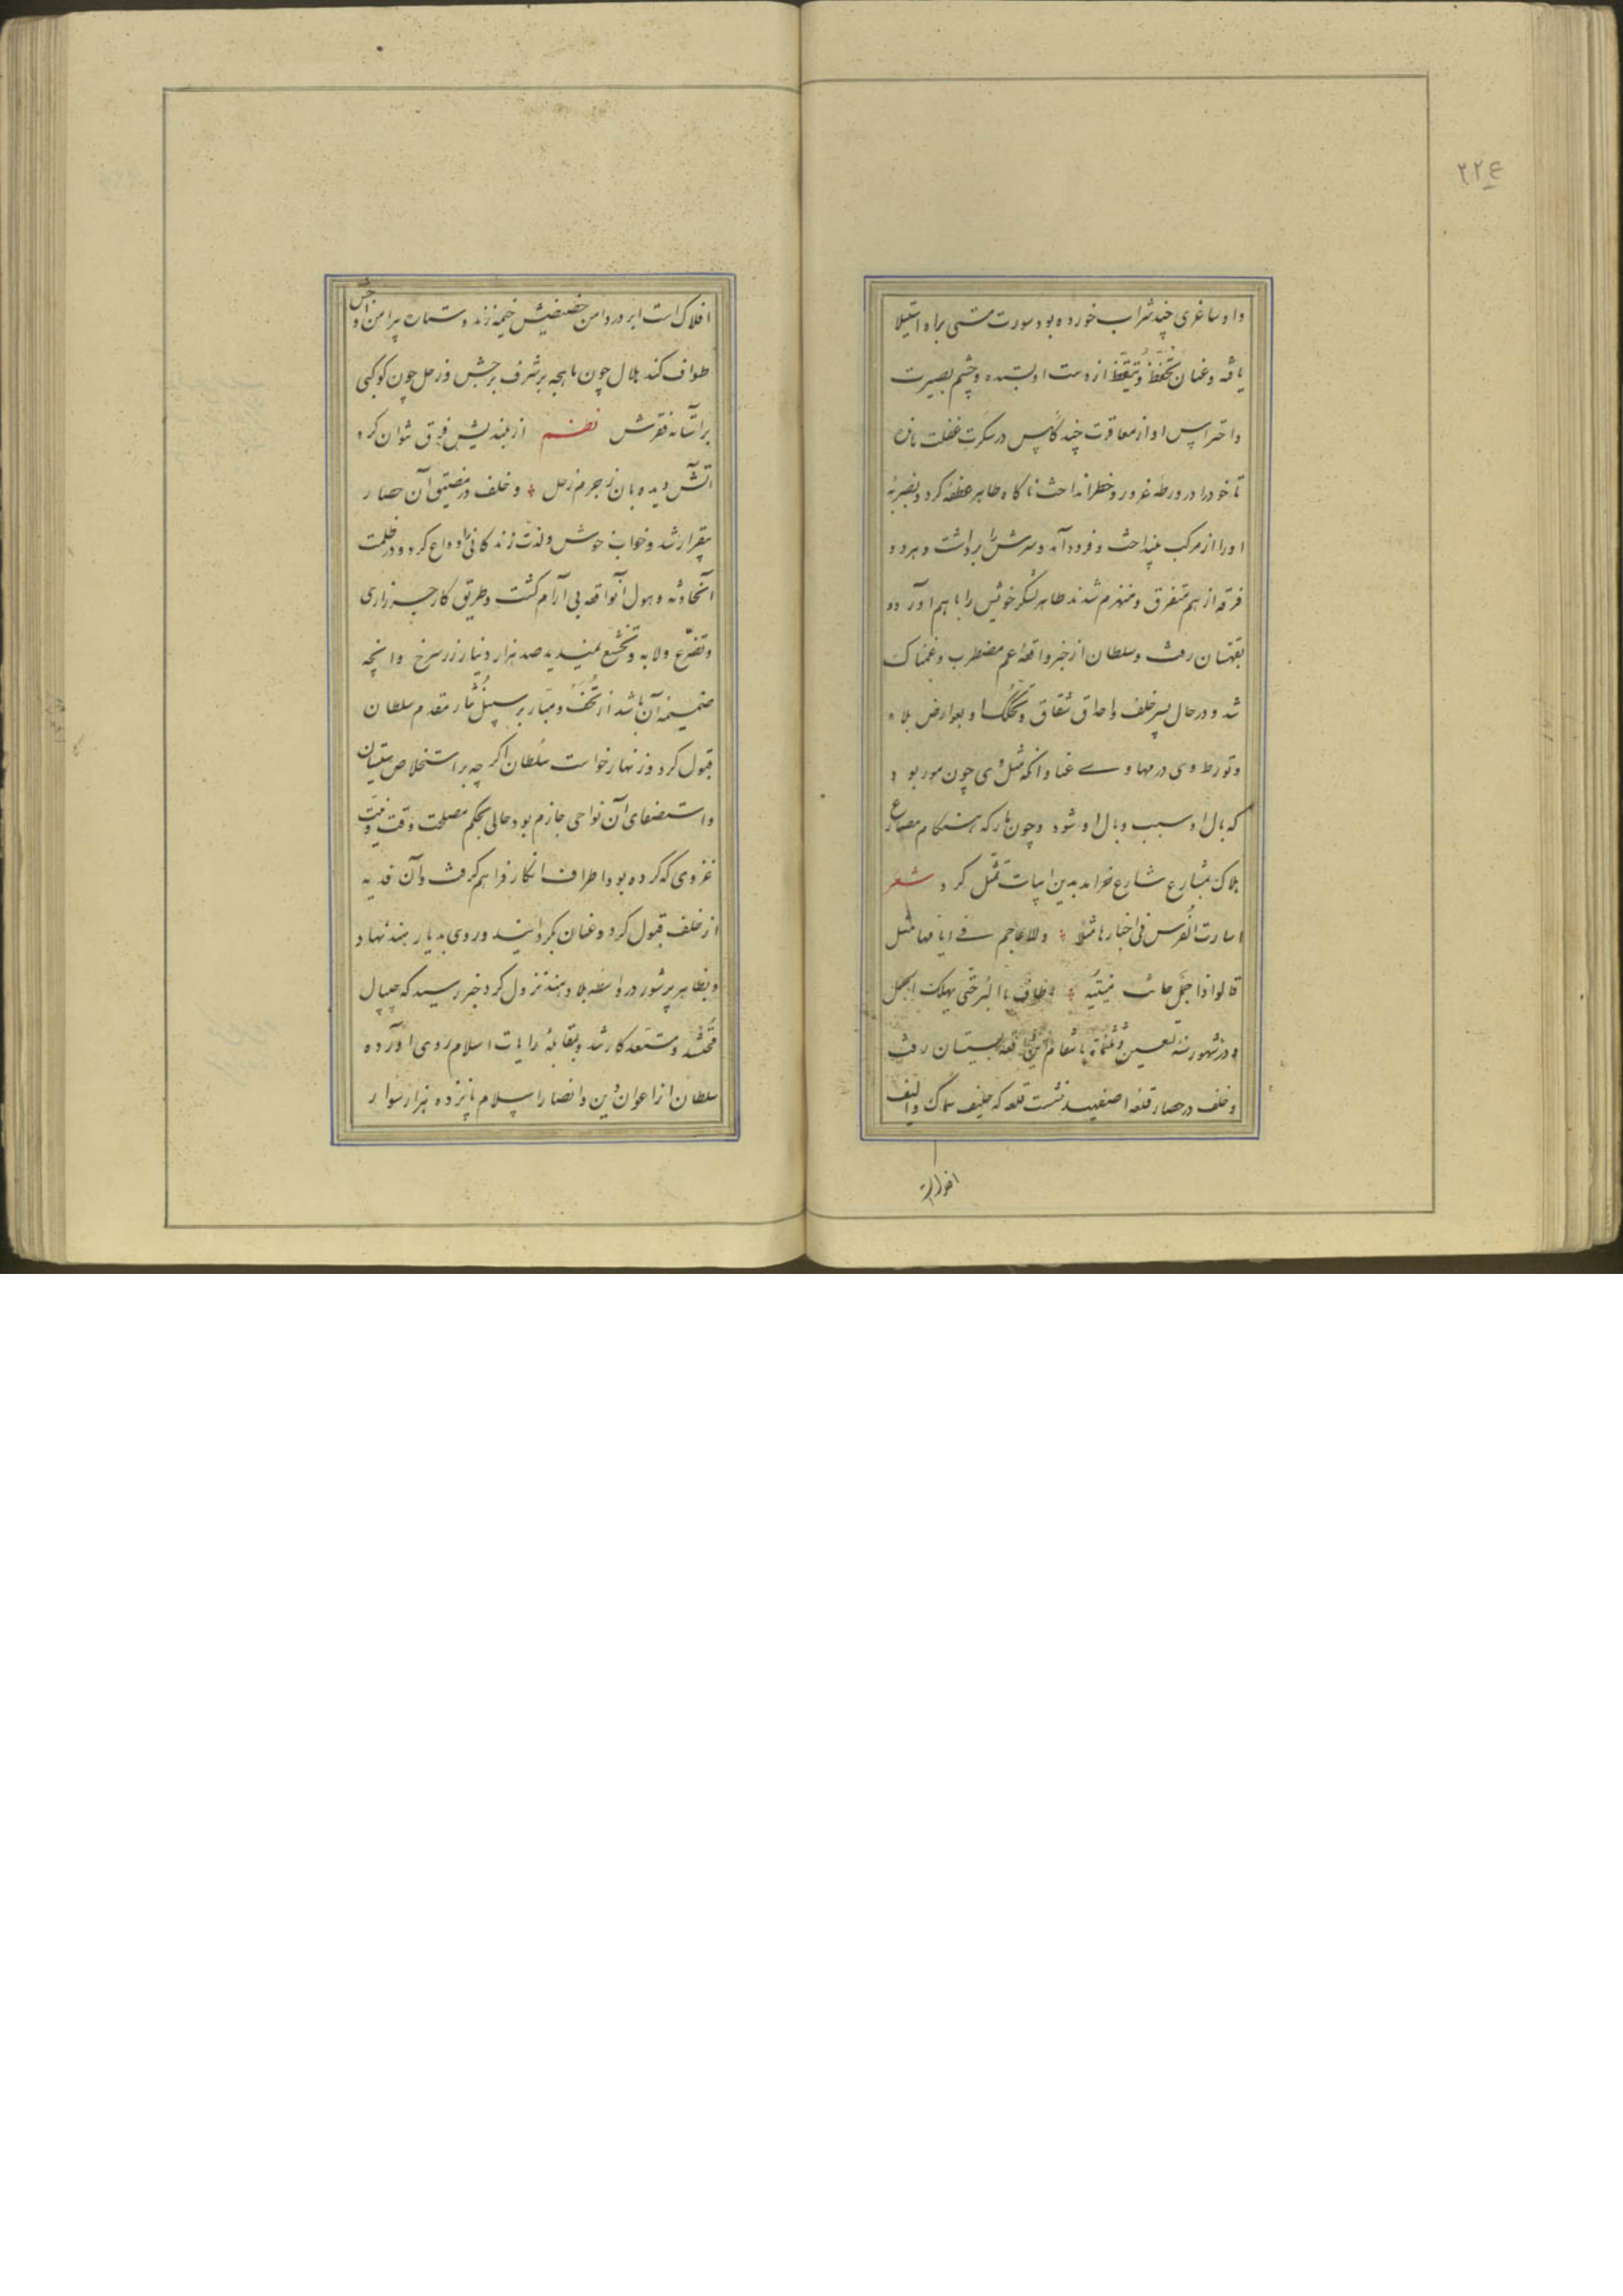 ۲۲۴
و او ساغری چند شراب خورده بود و سورت مستی براو استیلا
یافته و عنان تحفّظ و تیقّظ از دست او بستده و چشم بصیرت
و احتراس او از معاقرت چند کاس در سکرت غفلت مانده
تا خود را در ورطه غرور و خطر انداخت ناگاه طاهر عطفهٔ کرد و بضربهٔ
او را از مرکب بینداخت و فرود آمد و سرش را برداشت و هر دو
فرقه از هم متفرق و منهزم شدند طاهر لشکر خویش را با هم آورد و
بقهستان رفت و سلطان از خبر واقعهٔ عم مضطرب و غمناک
شد و در حال پسر خلف و احداق شقاق و تحکّک او بعوارض بلا
و تورط وی در مهاوی عنا و انکه مثل وی چون مور بود
که بال او سبب وبال او شود و چون مار که هنگام مصارع
هلاک بشارع شارع خرامد بدین ابیات تمثل کرد شعر
اسارت الفرس فی اخبارها مثلا و للاعاجم فی ایامها مثل
قالوا اذا جمل حانت منیّته اطاف بالبئر حتی یهلک الجمل
و در شهور سنه تسعین و ثلثمائة بانتقام این واقعه بسیستان رفت
و خلف در حصار قلعه اصفهبد نشست قلعه که حلیف سماک و الیف
افلاک است ابر در دامن حضیضش خیمه زند و ستاره پیرامن اوجش
طواف کند هلال چون ماهچه بر شرف برجش و زحل چون کوکبی
بر آستانه فقرش نظم از بلندیش فرق نتوان کرد
آتش دیده بان ز جرم زحل و خلف در مضیق آن حصار
بیقرار شد و خواب خوش و لذت زندگانی را وداع کرد و در ظلمت
آنحادثه و هول آنواقعه بی آرام گشت و طریق کار جز زاری
و تضرّع و لابه و تخشّع نمیدید صد هزار دینار زر سرخ و انچه
ضمیمه آن باشد از تحف و مبارّ بر سبیل نثار مقدم سلطان
قبول کرد و زنهار خواست سلطان اگر چه بر استخلاص سیستان
و استصفای آن نواحی جازم بود حالی بحکم مصلحت وقت و نیّت
غزوی که کرده بود اطراف انکار فراهم گرفت و آن فدیه
از خلف قبول کرد و عنان بگردانید و روی بدیار هند نهاد
و بظاهر پرشور در واسطه بلاد هند نزول کرد خبر رسید که جیپال
محتشد و مستعد کار شد و بمقابلهٔ رایات اسلام روی آورده
سلطان از اعوان دین و انصار اسلام پانزده هزار سوار